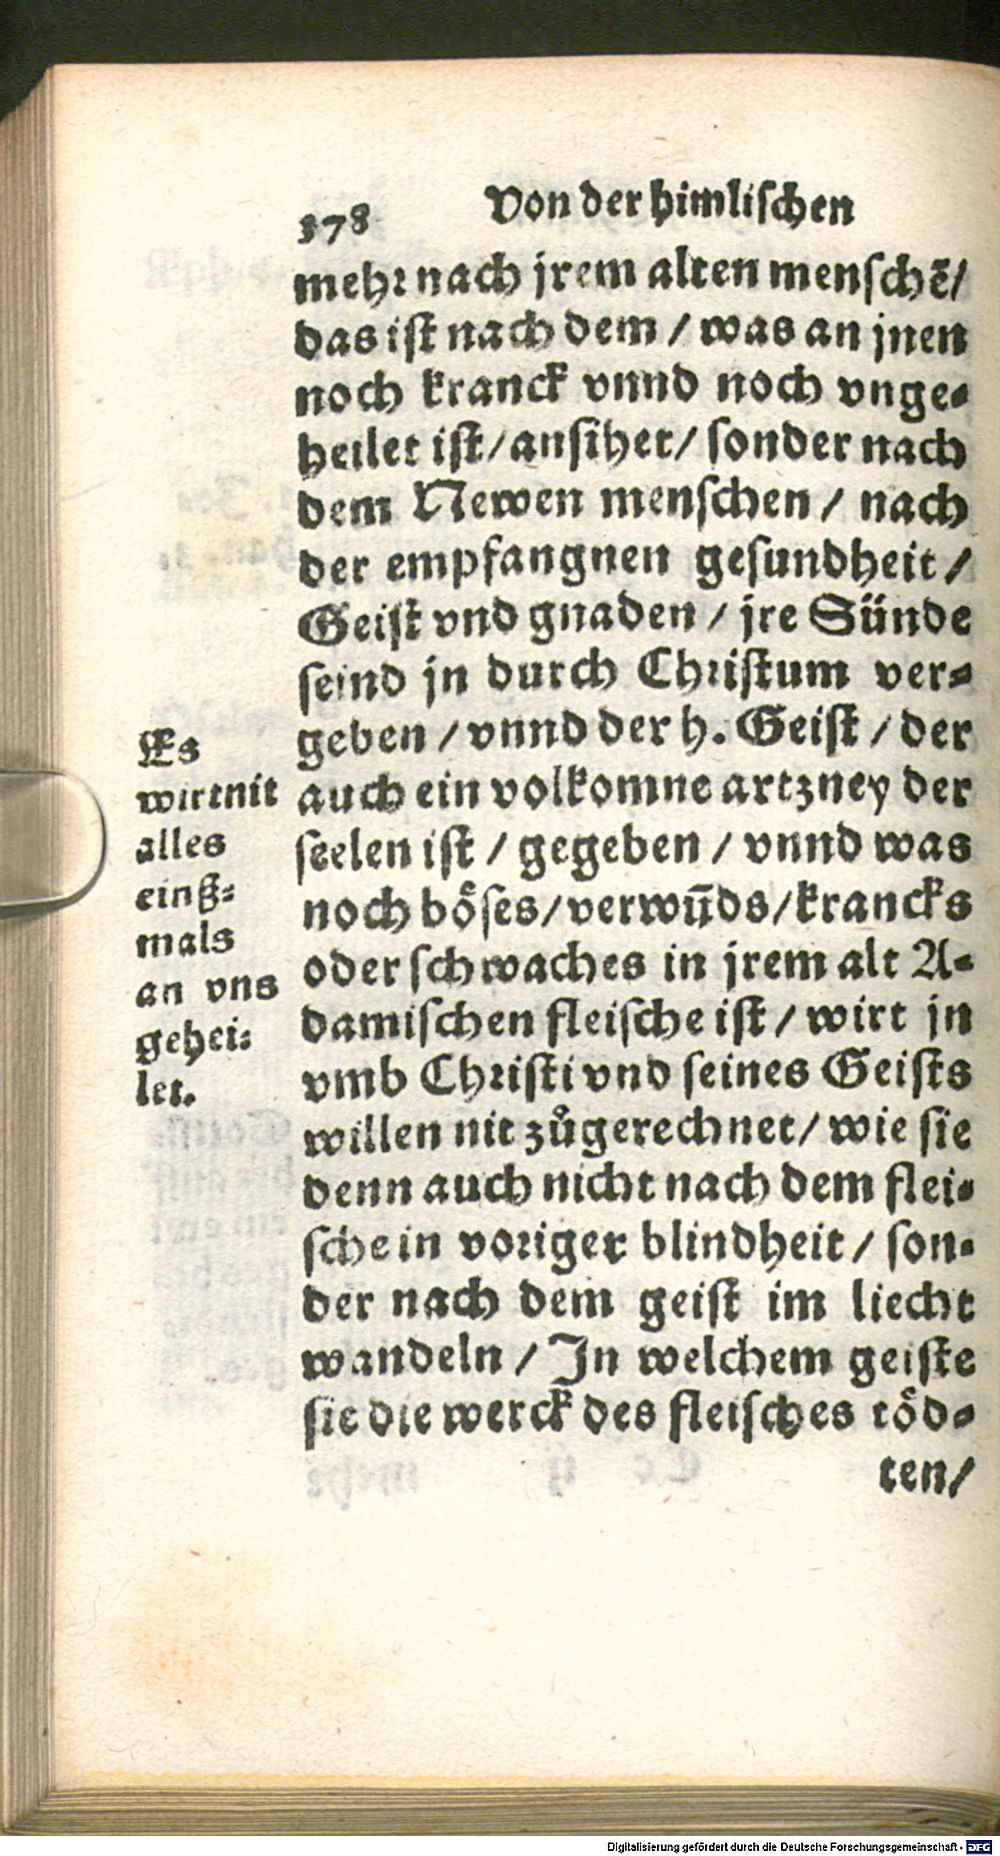 378 Von der himlischen
mehr nach jrem alten menschẽ/
das ist nach dem / was an jnen
noch kranck vnnd noch vnge-
heilet ist/ansihet/ sonder nach
dem Newen menschen / nach
der empfangnen gesundheit /
Geist vnd gnaden / jre Sünde
seind jn durch Christum ver-
geben / vnnd der h. Geist / der
auch ein volkomne artzney der
seelen ist / gegeben / vnnd was
noch böses/verwũds/krancks
oder schwaches in jrem alt A-
damischen fleische ist / wirt jn
vmb Christi vnd seines Geists
willen nit zůgerechnet/ wie sie
denn auch nicht nach dem flei-
sche in voriger blindheit / son-
der nach dem geist im liecht
wandeln / In welchem geiste
sie die werck des fleisches töd-
ten/
Es
wirt nit
alles
einß-
mals
an vns
gehei-
let.
Digitalisierung gefördert durch die Deutsche Forschungsgemeinschaft - DFG